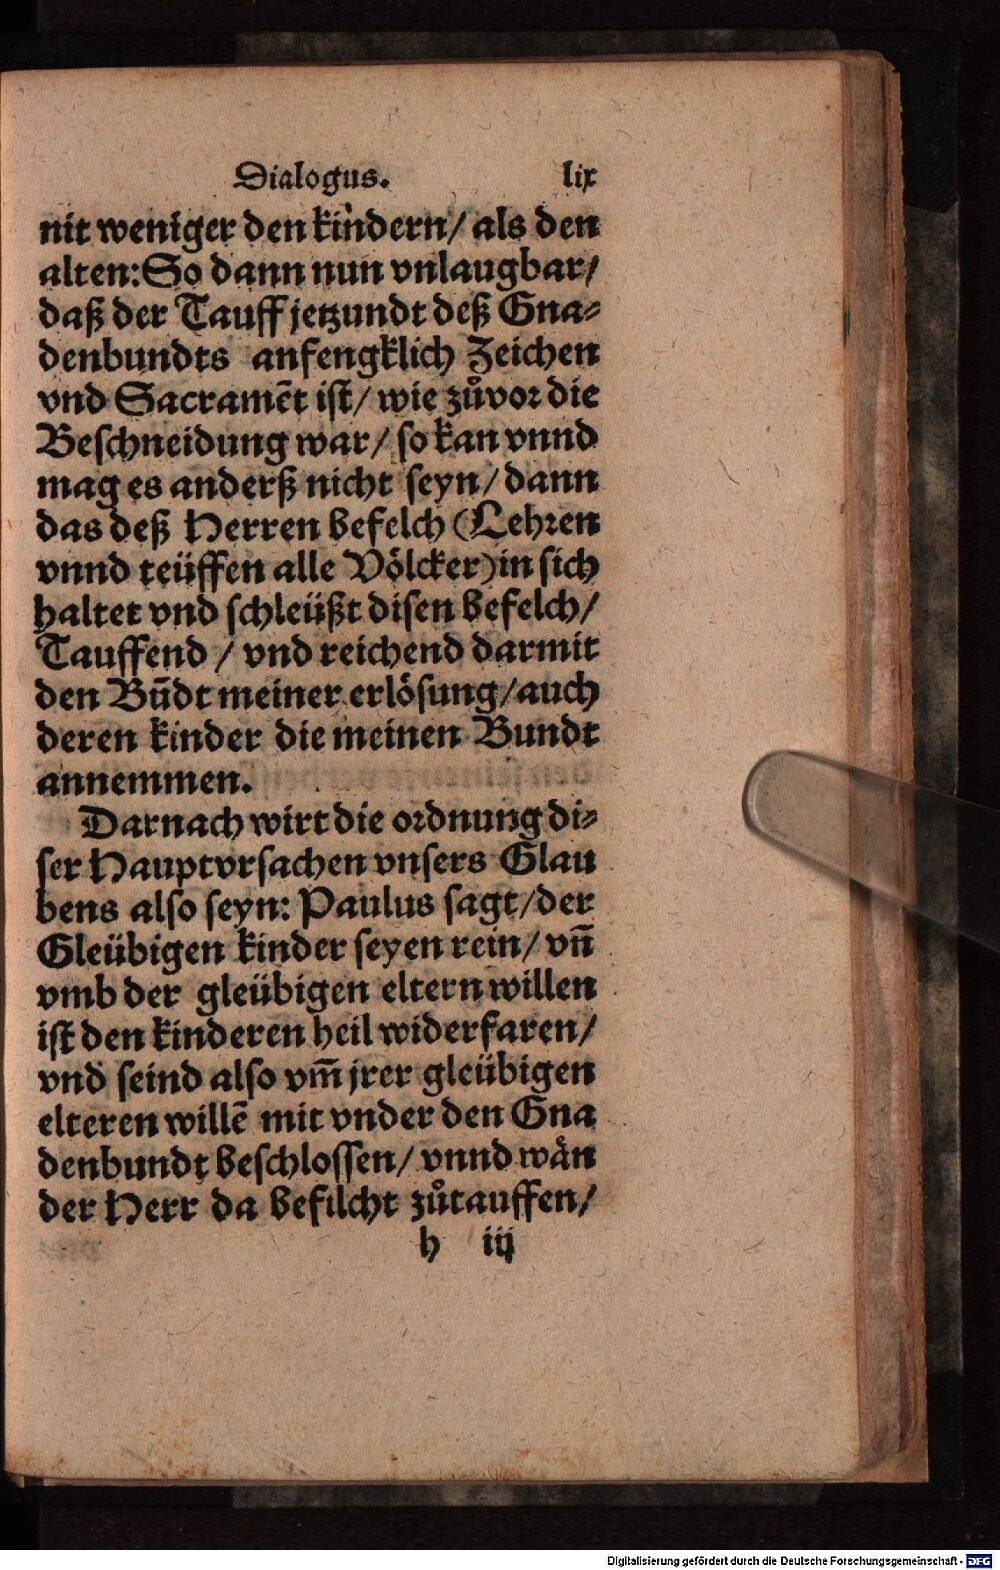 Dialogus. lix
nit weniger den kindern/ als den
alten: So dann nun vnlaugbar/
daß der Tauff jetzundt deß Gna⸗
denbundts anfengklich Zeichen
vnd Sacramēt ist/ wie zůvor die
Beschneidung war/ so kan vnnd
mag es anderß nicht seyn/ dann
das deß Herren befelch (Lehren
vnnd teüffen alle Völcker) in sich
haltet vnd schleüßt disen befelch/
Tauffend / vnd reichend darmit
den Būdt meiner erlösung/ auch
deren kinder die meinen Bundt
annemmen.
Darnach wirt die ordnung di⸗
ser Hauptvrsachen vnsers Glau
bens also seyn: Paulus sagt/ der
Gleübigen kinder seyen rein/ vn̄
vmb der gleübigen eltern willen
ist den kinderen heil widerfaren/
vnd seind also vm̄ jrer gleübigen
elteren willē mit vnder den Gna
denbundt beschlossen/ vnnd wän
der Herr da befilcht zůtauffen/
h iij
Digitalisierung gefördert durch die Deutsche Forschungsgemeinschaft - DFG